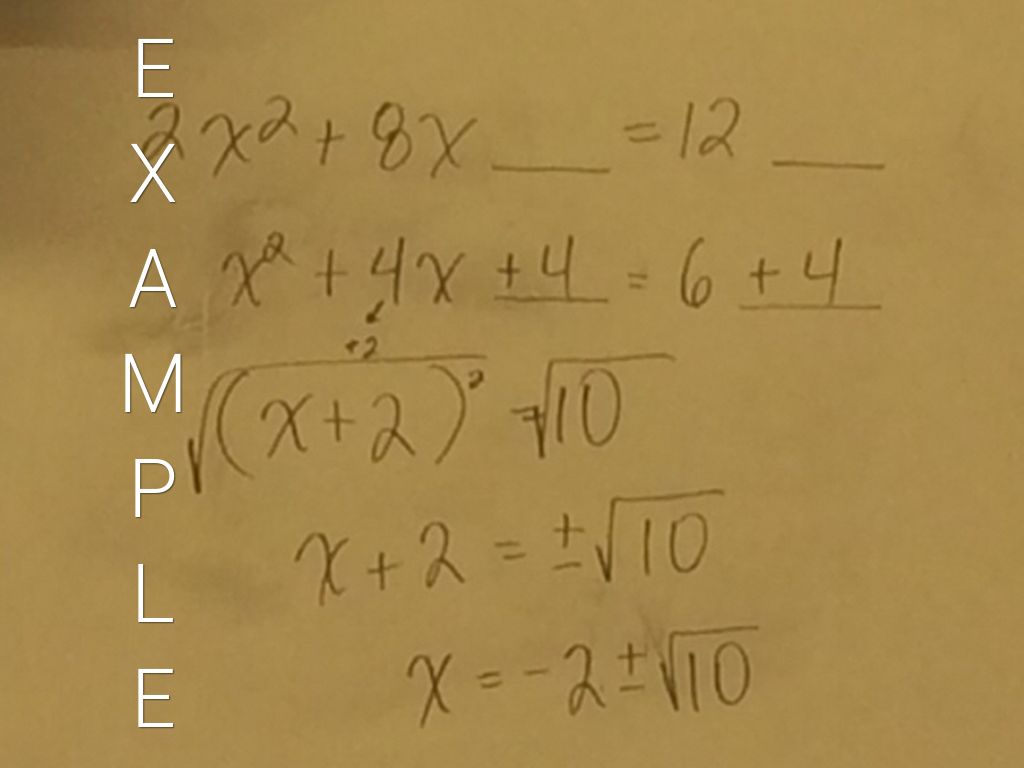 EXAMPLE
2x² + 8x ___ = 12 ___
x² + 4x + 4 = 6 + 4
+2
√(x + 2)² = √10
x + 2 = ±√10
x = -2 ± √10